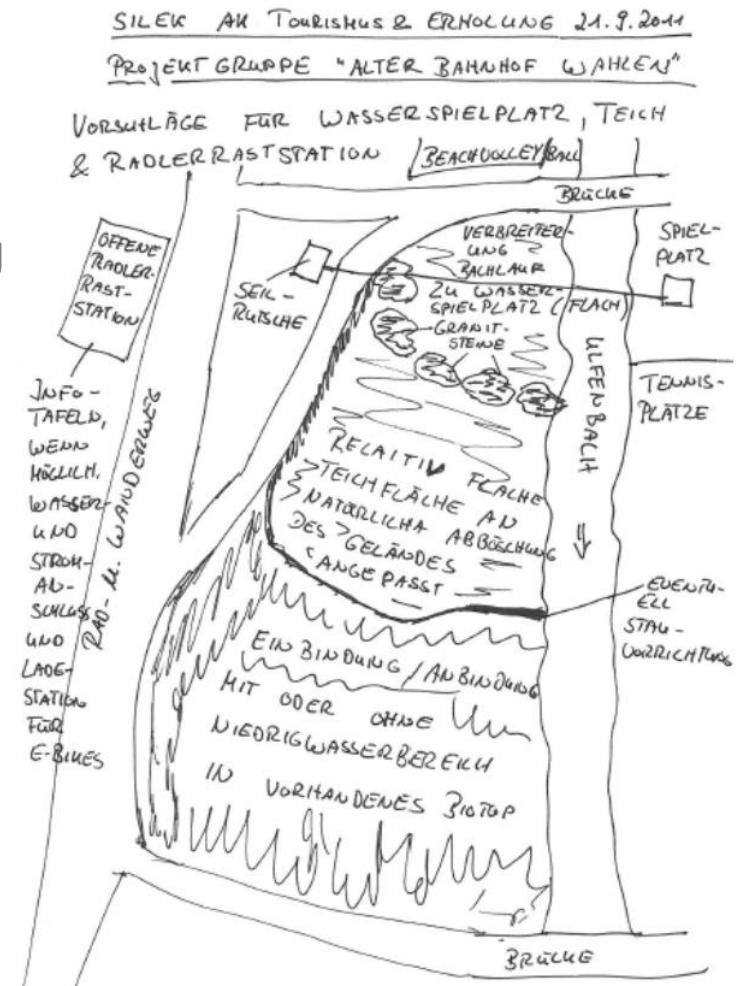 SILEK AK TOURISMUS & ERHOLUNG 21.9.2011
PROJEKTGRUPPE "ALTER BAHNHOF WAHLEN"
VORSCHLÄGE FÜR WASSERSPIELPLATZ, TEICH
& RADLERRASTSTATION
BEACHVOLLEYBALL
BRÜCKE
OFFENE
RADLER-
RAST-
STATION
SEIL-
RUTSCHE
VERBREITER-
UNG
BACHLAUF
ZU WASSER-
SPIELPLATZ (FLACH)
GRANIT-
STEINE
SPIEL-
PLATZ
ULFENBACH
TENNIS-
PLÄTZE
INFO-
TAFELN,
WENN
MÖGLICH,
WASSER-
UND
STROM-
AN-
SCHLUSS
UND
LADE-
STATION
FÜR
E-BIKES
RAD- U. WANDERWEG
RELAITIV FLACHE
TEICHFLÄCHE AN
NATÜRLICHA ABBÖSCHUNG
DES GELÄNDES
ANGEPASST
EVENTU-
ELL
STAU-
VORRICHTUNG
EINBINDUNG / ANBINDUNG
MIT ODER OHNE
NIEDRIGWASSERBEREICH
IN VORHANDENES BIOTOP
BRÜCKE